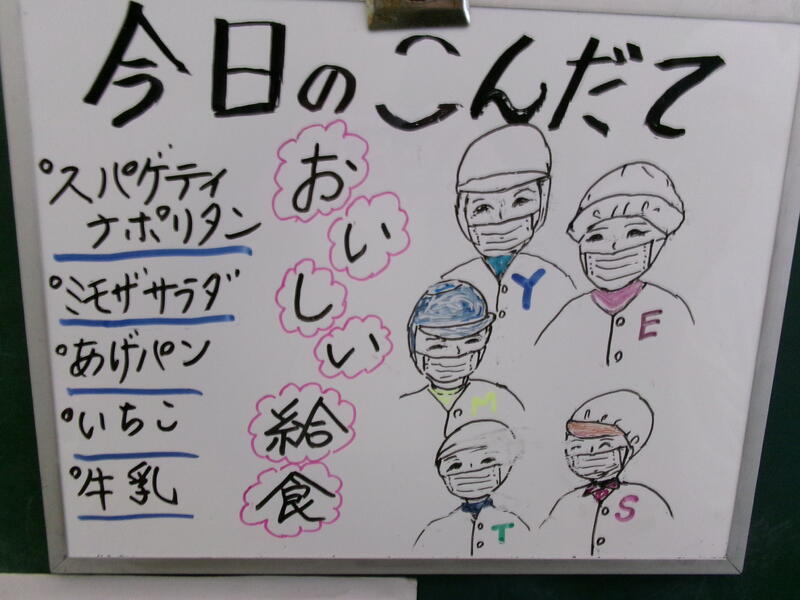 今日のこんだて
°スパゲティ
ナポリタン
°ミモザサラダ
°あげパン
°いちご
°牛乳
おいしい
給食
Y
E
M
T
S